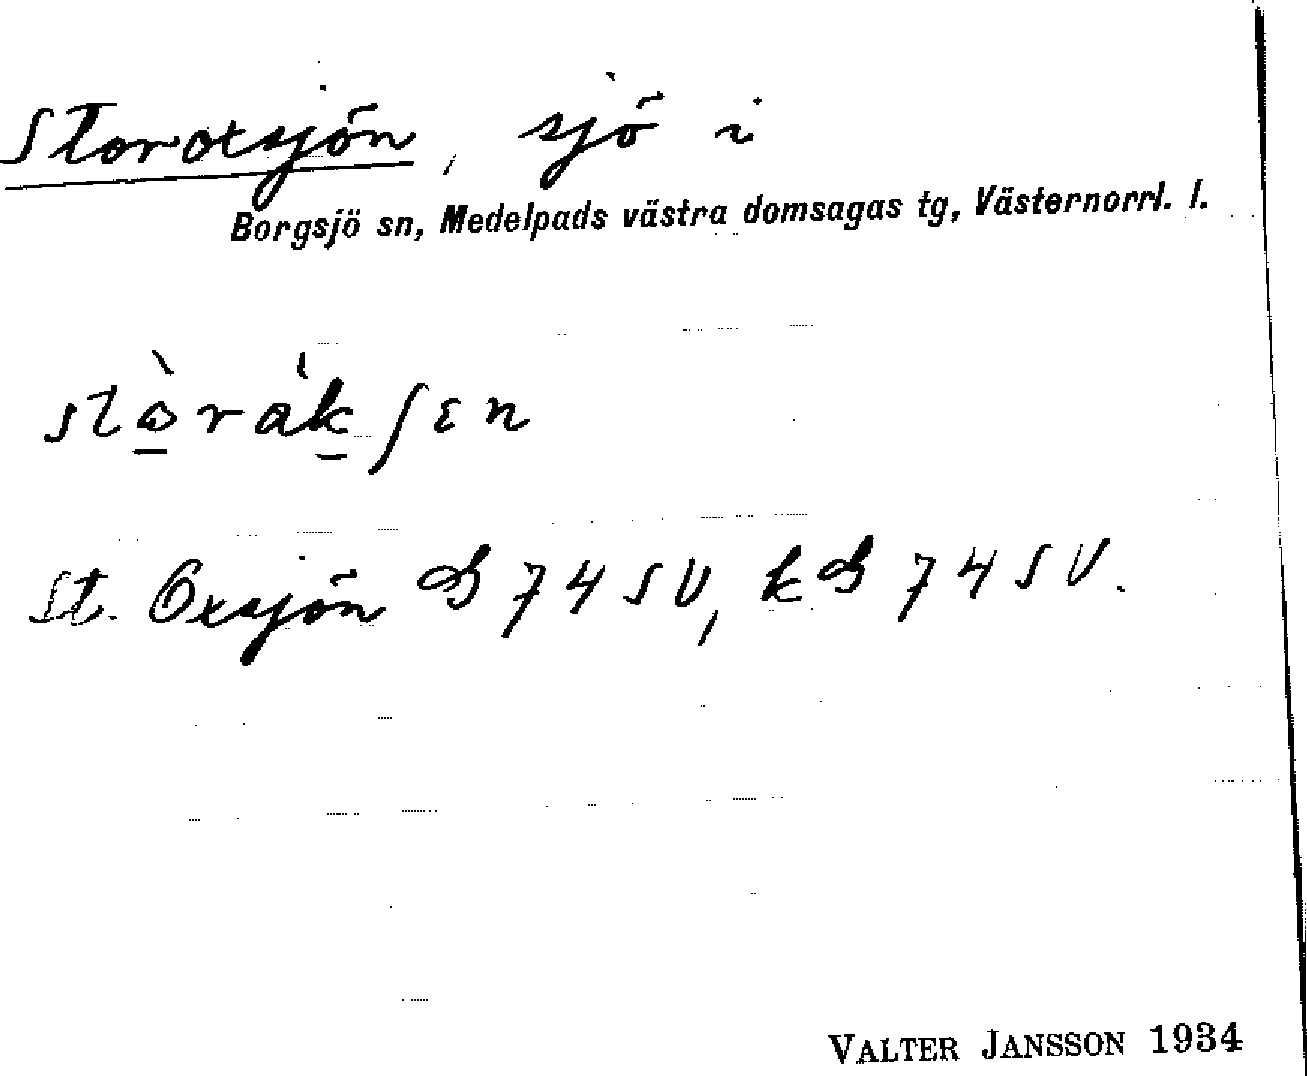 Storotsjön, sjö i
Borgsjö sn, Medelpads västra domsagas tg, Västernorrl. l.
St. Oxsjön GS 74 SV, kGS 74 SV.
VALTER JANSSON 1934